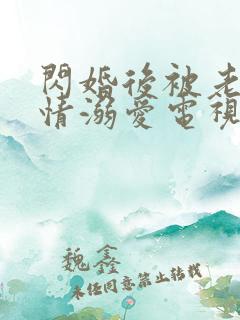 閃婚後被老
情溺愛電視
魏鑫
未经同意禁止转载